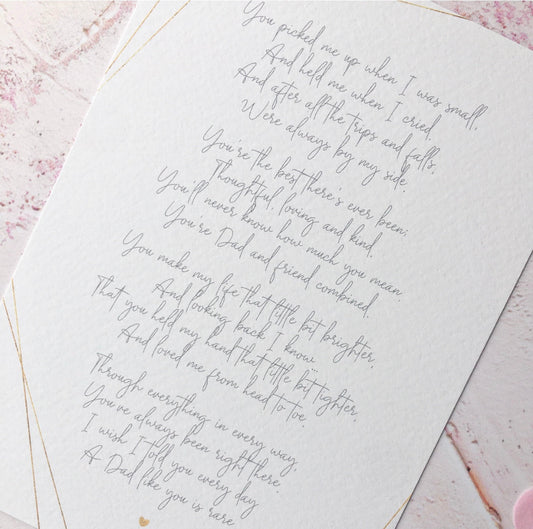 You picked me up when I was small,
And held me when I cried.
And after all the trips and falls,
Were always by my side.
You're the best there's ever been;
Thoughtful, loving and kind.
You'll never know how much you mean.
You're Dad and friend combined.
You make my life that little bit brighter,
And looking back I know...
That you held my hand that little bit tighter,
And loved me from head to toe.
Through everything in every way,
You've always been right there.
I wish I told you every day
A Dad like you is rare.